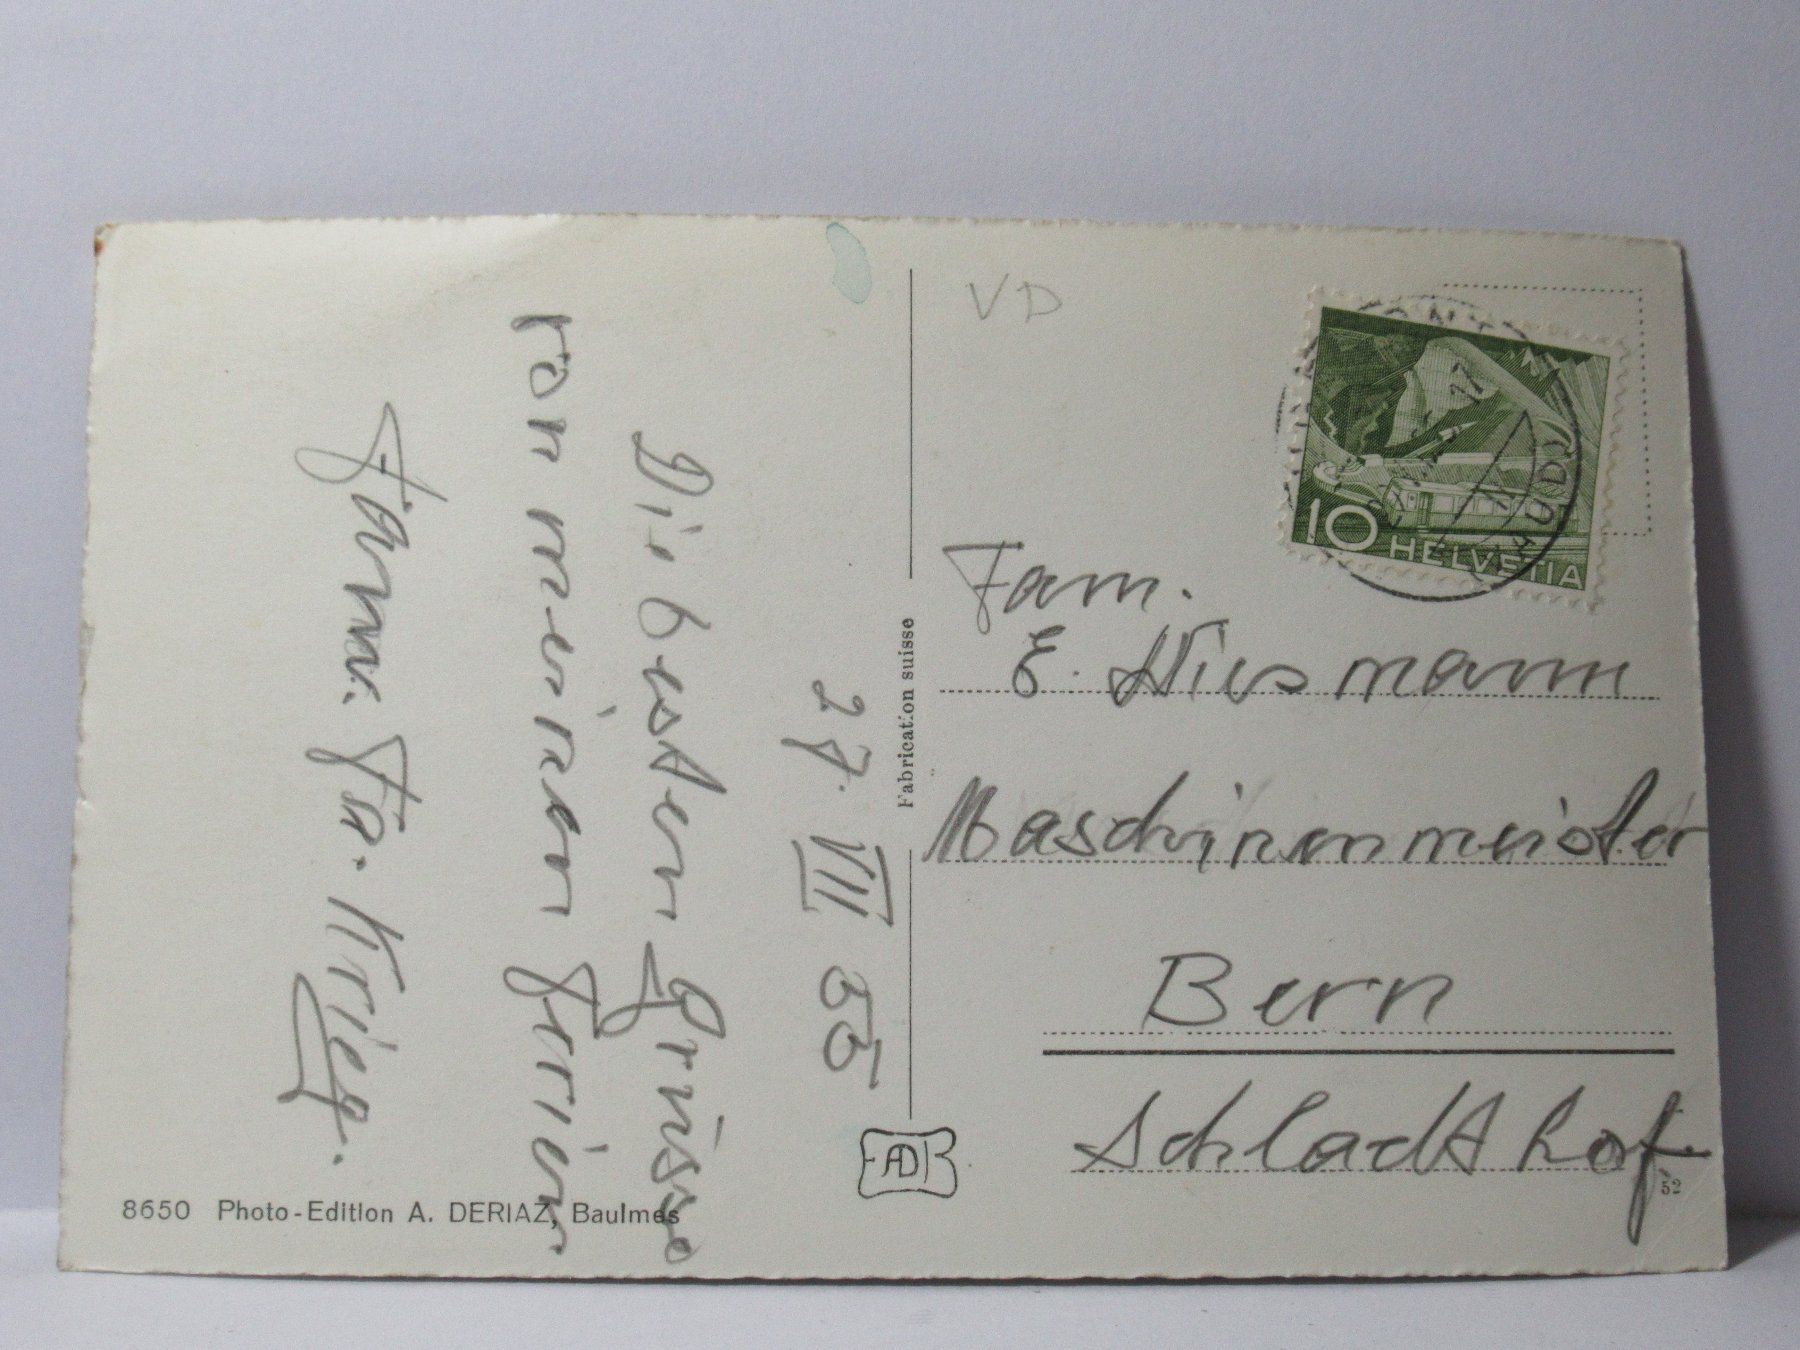 27. VII 55
Die besten Grüsse
von meinen Ferien
Fr. Krieg.
8650 Photo-Edition A. DERIAZ, Baulmes
Fabrication suisse
VD
10 HELVETIA
17
(VAUD)
Fam.
E. Wiesmann
Maschinenmeister
Bern
Schlachthof
52